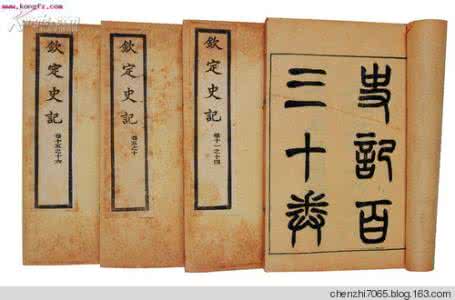 www.kongfz.com
欽定史記
卷十五之十六
欽定史記
卷五之十
欽定史記
卷十一之十四
史記百
三十卷
chenzhi7065.blog.163.com